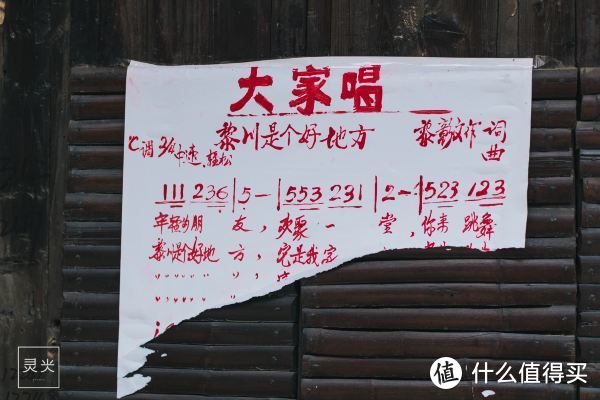 大家喝
黎川是个好地方
黎敦文作词
曲
C调 3/4 中速、轻松
111 236 | 5 - | 553 231 | 2 - | 523 123
年轻的朋 友，欢聚一 堂，你来 跳舞
黎川是个好地 方，它是我家
灵光
值 什么值得买